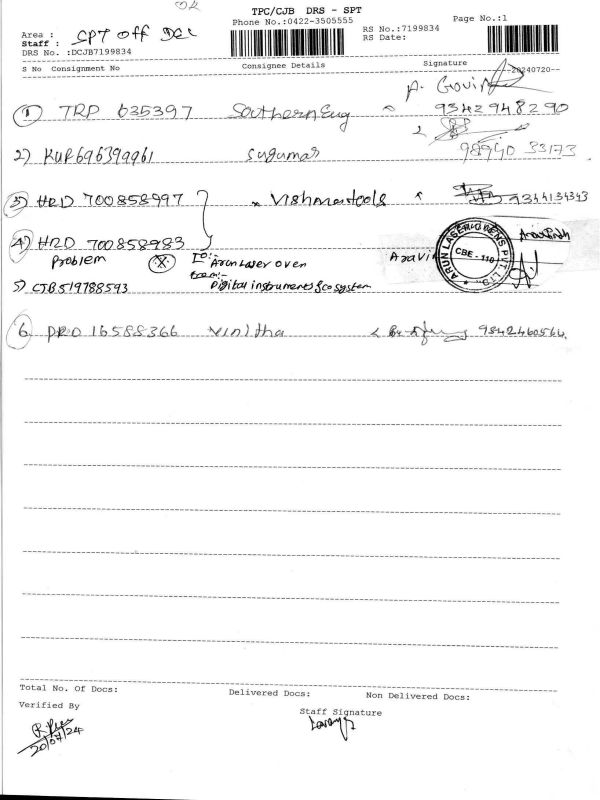 OK
TPC/CJB DRS - SPT
Phone No.:0422-3505555
Page No.:1
Area :
Staff : SPT Off Del
RS No.:7199834
DRS No. :DCJB7199834
RS Date:
S No Consignment No Consignee Details Signature
--20240720--
P. Govin
1 TRP 635397 Southern Eng 9342948290
2) KUR696399961 Sugumar 98940 33173
3) HRD 700858997 Vishma tools 9344134343
4) HRD 700858983
Problem X To:- Arun Laser Oven Aravin
From:-
5) CJB519788593 Digital instruments Eco system
ARUN LASER DENS PVT. LTD.
CBE - 110
6 PRD 16588366 Vinitha 9842460564.
Total No. Of Docs: Delivered Docs: Non Delivered Docs:
Verified By Staff Signature
20/07/24